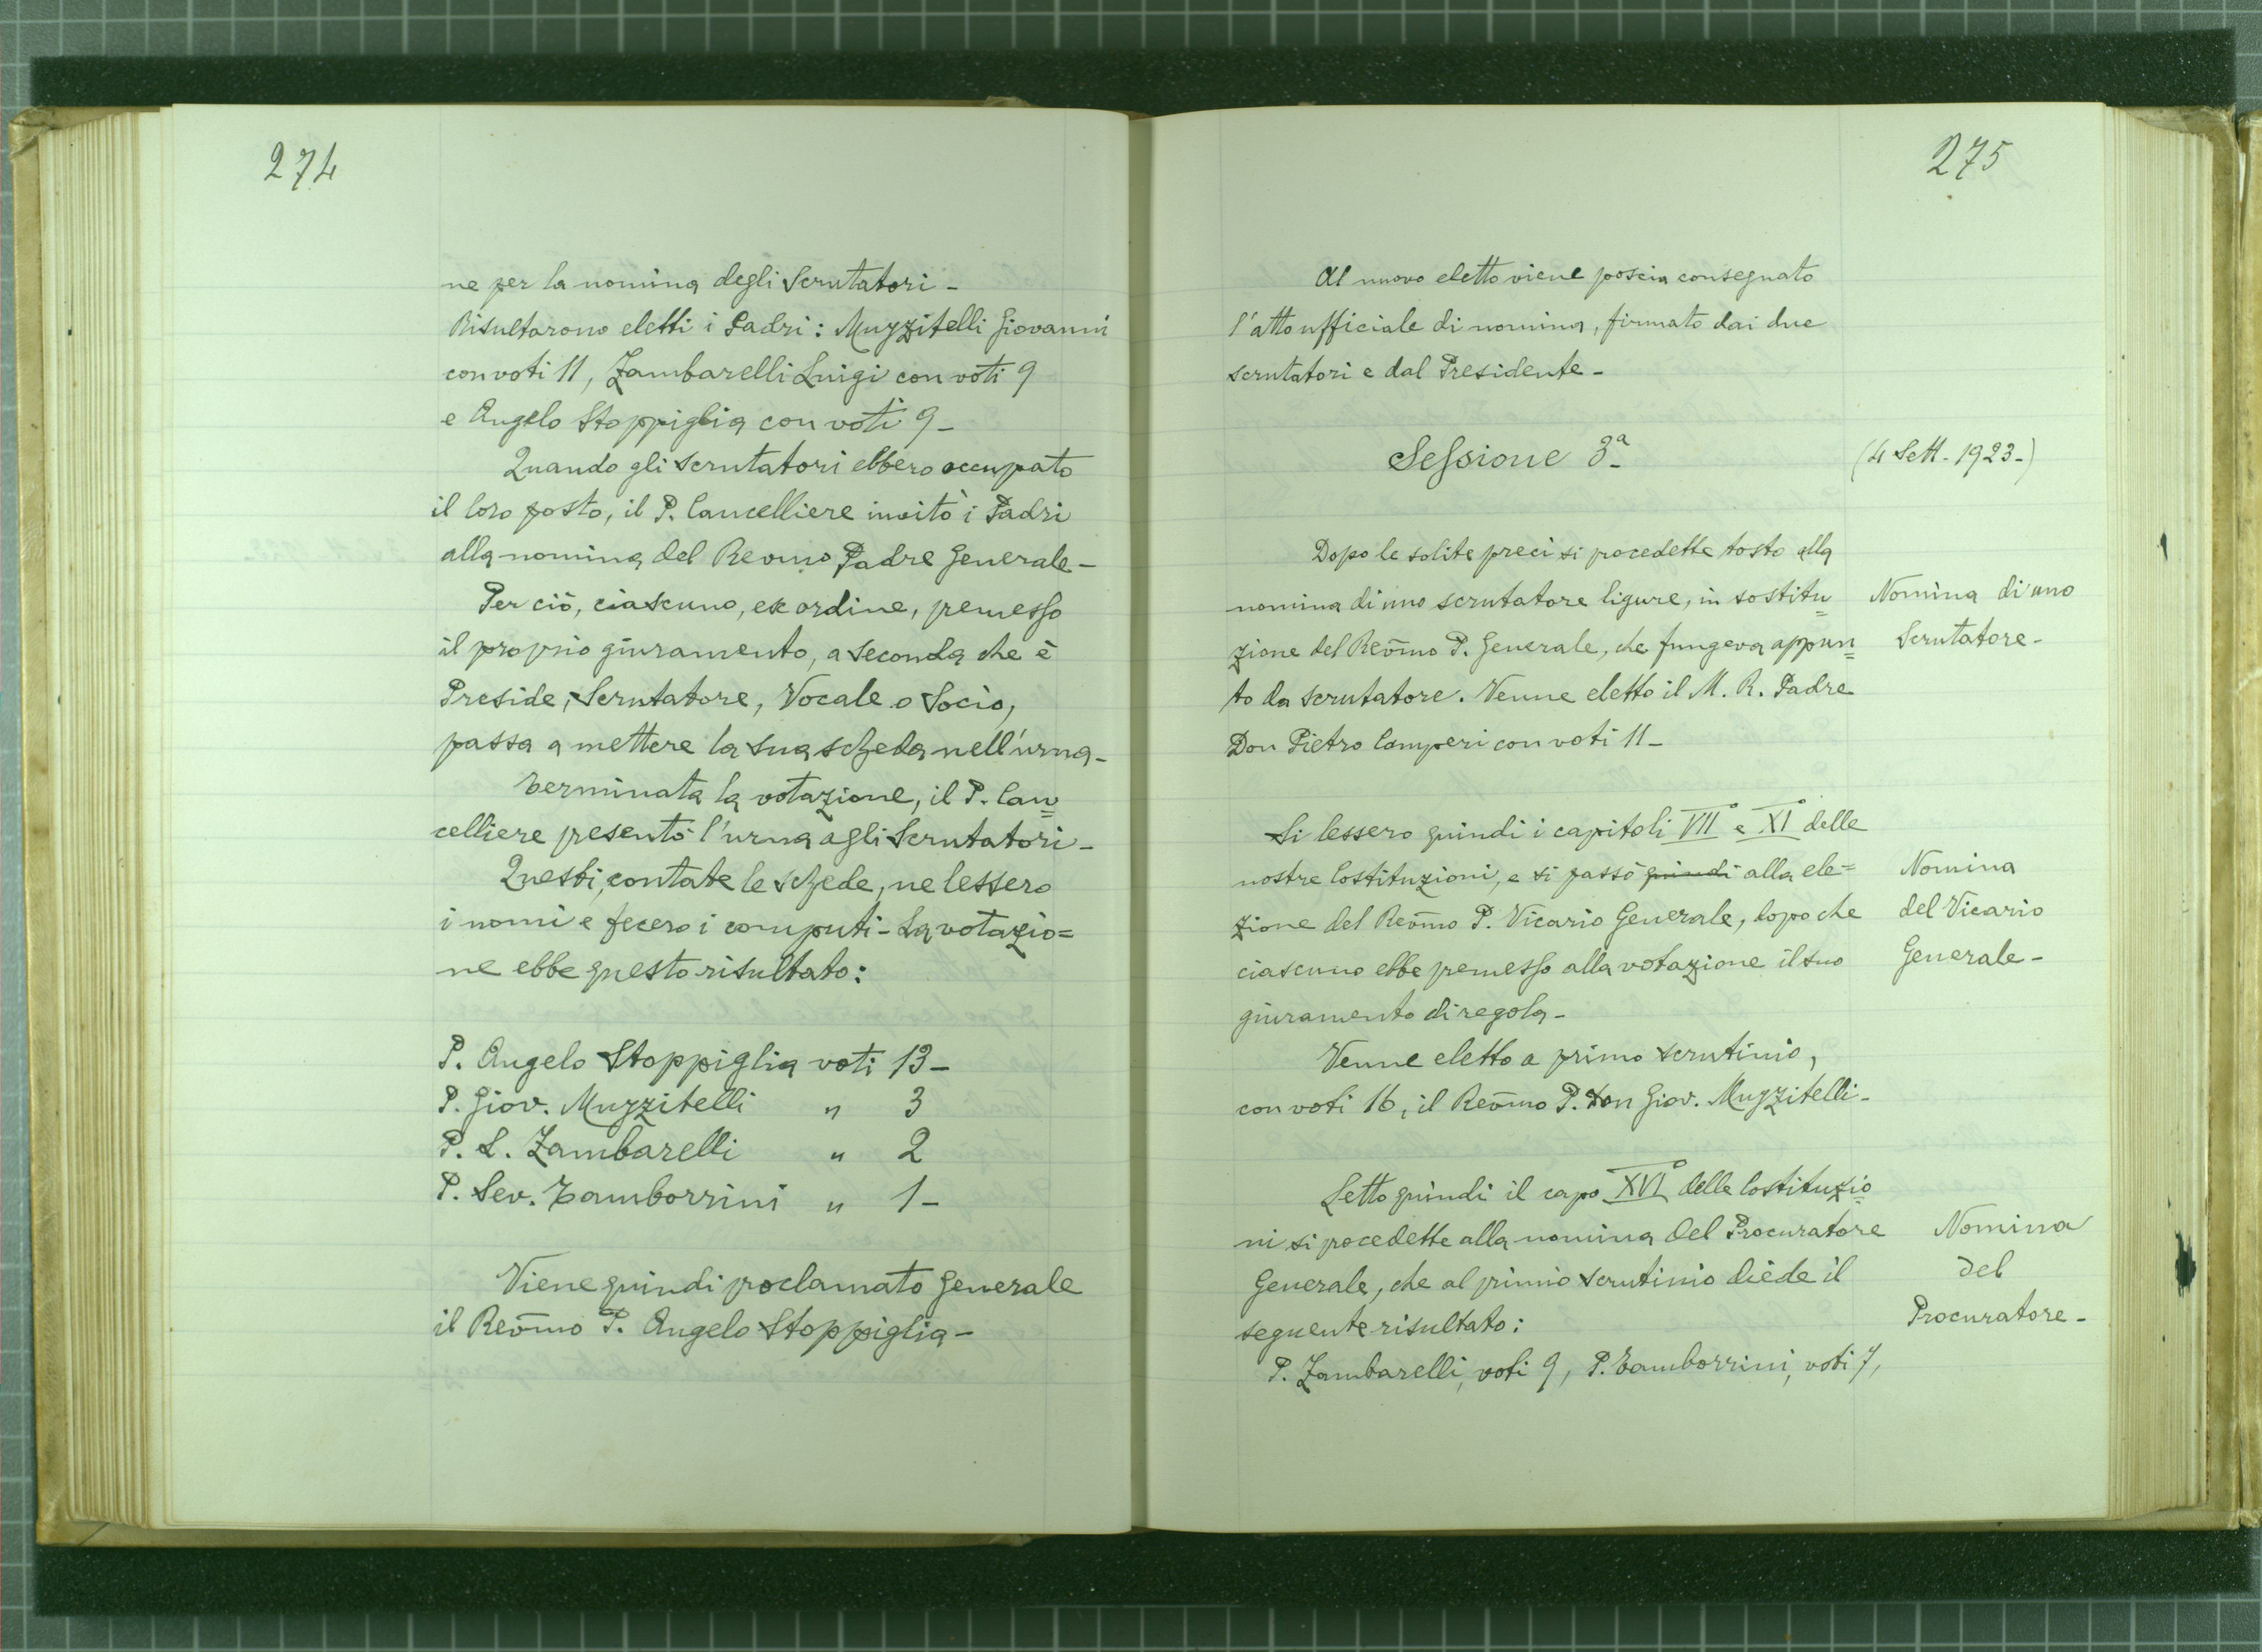 274
ne per la nomina degli Scrutatori -
Risultarono eletti i Padri: Muzzitelli Giovanni
con voti 11, Zambarelli Luigi con voti 9
e Angelo Stoppiglia con voti 9 -
Quando gli Scrutatori ebbero occupato
il loro posto, il P. Cancelliere invitò i Padri
alla nomina del Revmo Padre Generale -
Per ciò, ciascuno, ex ordine, premesso
il proprio giuramento, a seconda che è
Preside, Scrutatore, Vocale o Socio,
passa a mettere la sua scheda nell'urna -
Terminata la votazione, il P. Can=
celliere presentò l'urna agli Scrutatori -
Questi, contate le schede, ne lessero
i nomi e fecero i computi - La votazio=
ne ebbe questo risultato:
P. Angelo Stoppiglia voti 13 -
P. Giov. Muzzitelli " 3
P. L. Zambarelli " 2
P. Sev. Tamborrini " 1 -
Viene quindi proclamato Generale
il Revm̃o P. Angelo Stoppiglia -
275
Al nuovo eletto viene poscia consegnato
l'atto ufficiale di nomina, firmato dai due
scrutatori e dal Presidente -
Sessione 3ª
(4 Sett. 1923 -)
Dopo le solite preci si procedette tosto alla
nomina di uno scrutatore ligure, in sostitu=
zione del Revm̃o P. Generale, che fungeva appun=
to da scrutatore. Venne eletto il M. R. Padre
Don Pietro Camperi con voti 11 -
Nomina di uno
Scrutatore -
Si lessero quindi i capitoli VII° e XI° delle
nostre Costituzioni, e si passò quindi alla ele=
zione del Revm̃o P. Vicario Generale, dopo che
ciascuno ebbe premesso alla votazione il suo
giuramento di regola -
Nomina
del Vicario
Generale -
Venne eletto a primo scrutinio,
con voti 16, il Revm̃o P. Don Giov. Muzzitelli -
Letto quindi il capo XVI° delle Costituzio=
ni si procedette alla nomina del Procuratore
Generale, che al primo scrutinio diede il
seguente risultato:
P. Zambarelli, voti 9, P. Tamborrini, voti 7,
Nomina
del
Procuratore -